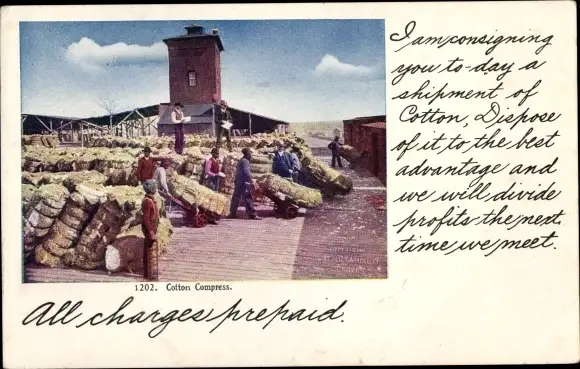 I am consigning
you to-day a
shipment of
Cotton, Dispose
of it to the best
advantage and
we will divide
profits the next
time we meet.
1202. Cotton Compress.
All charges prepaid.